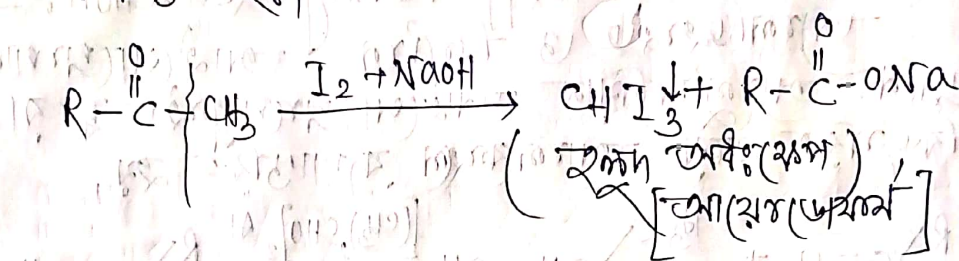 R-C(=O)-CH₃ —I₂ + NaOH→ CHI₃↓ + R-C(=O)-ONa
(হলুদ অধঃক্ষেপ)
[আয়োডোফর্ম]